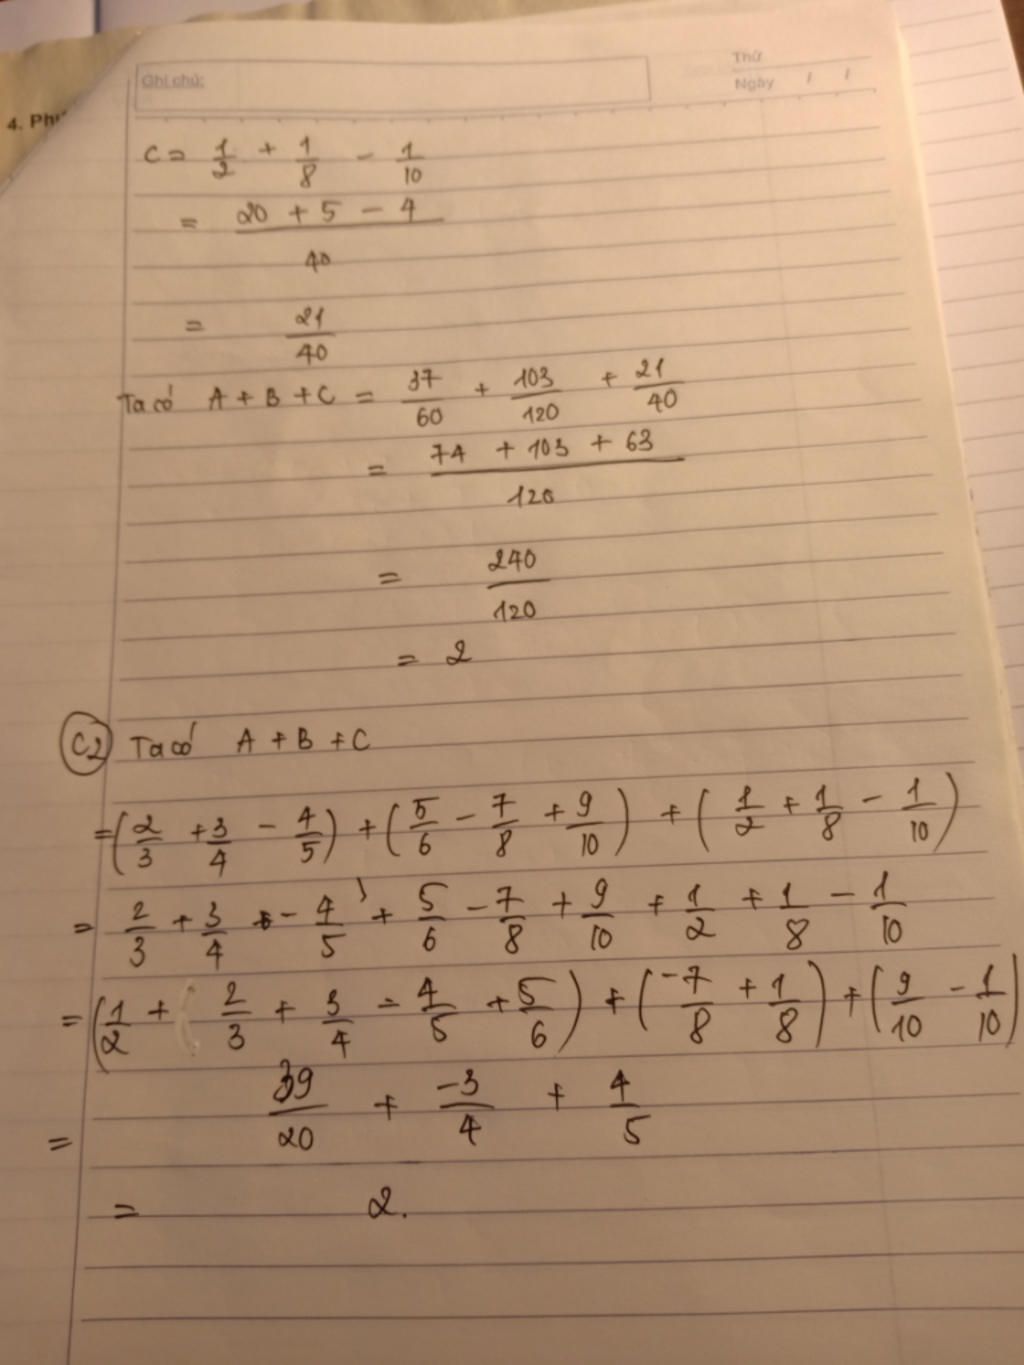 Ghi chú:
Thứ
Ngày / /
4. Ph
C = 1/2 + 1/8 - 1/10
= (20 + 5 - 4)/40
= 21/40
Ta có A + B + C = 37/60 + 103/120 + 21/40
= (74 + 103 + 63)/120
= 240/120
= 2
C2 Ta có A + B + C
= (2/3 + 3/4 - 4/5) + (5/6 - 7/8 + 9/10) + (1/2 + 1/8 - 1/10)
= 2/3 + 3/4 - 4/5 + 5/6 - 7/8 + 9/10 + 1/2 + 1/8 - 1/10
= (1/2 + 2/3 + 3/4 - 4/5 + 5/6) + (-7/8 + 1/8) + (9/10 - 1/10)
= 39/20 + -3/4 + 4/5
= 2.